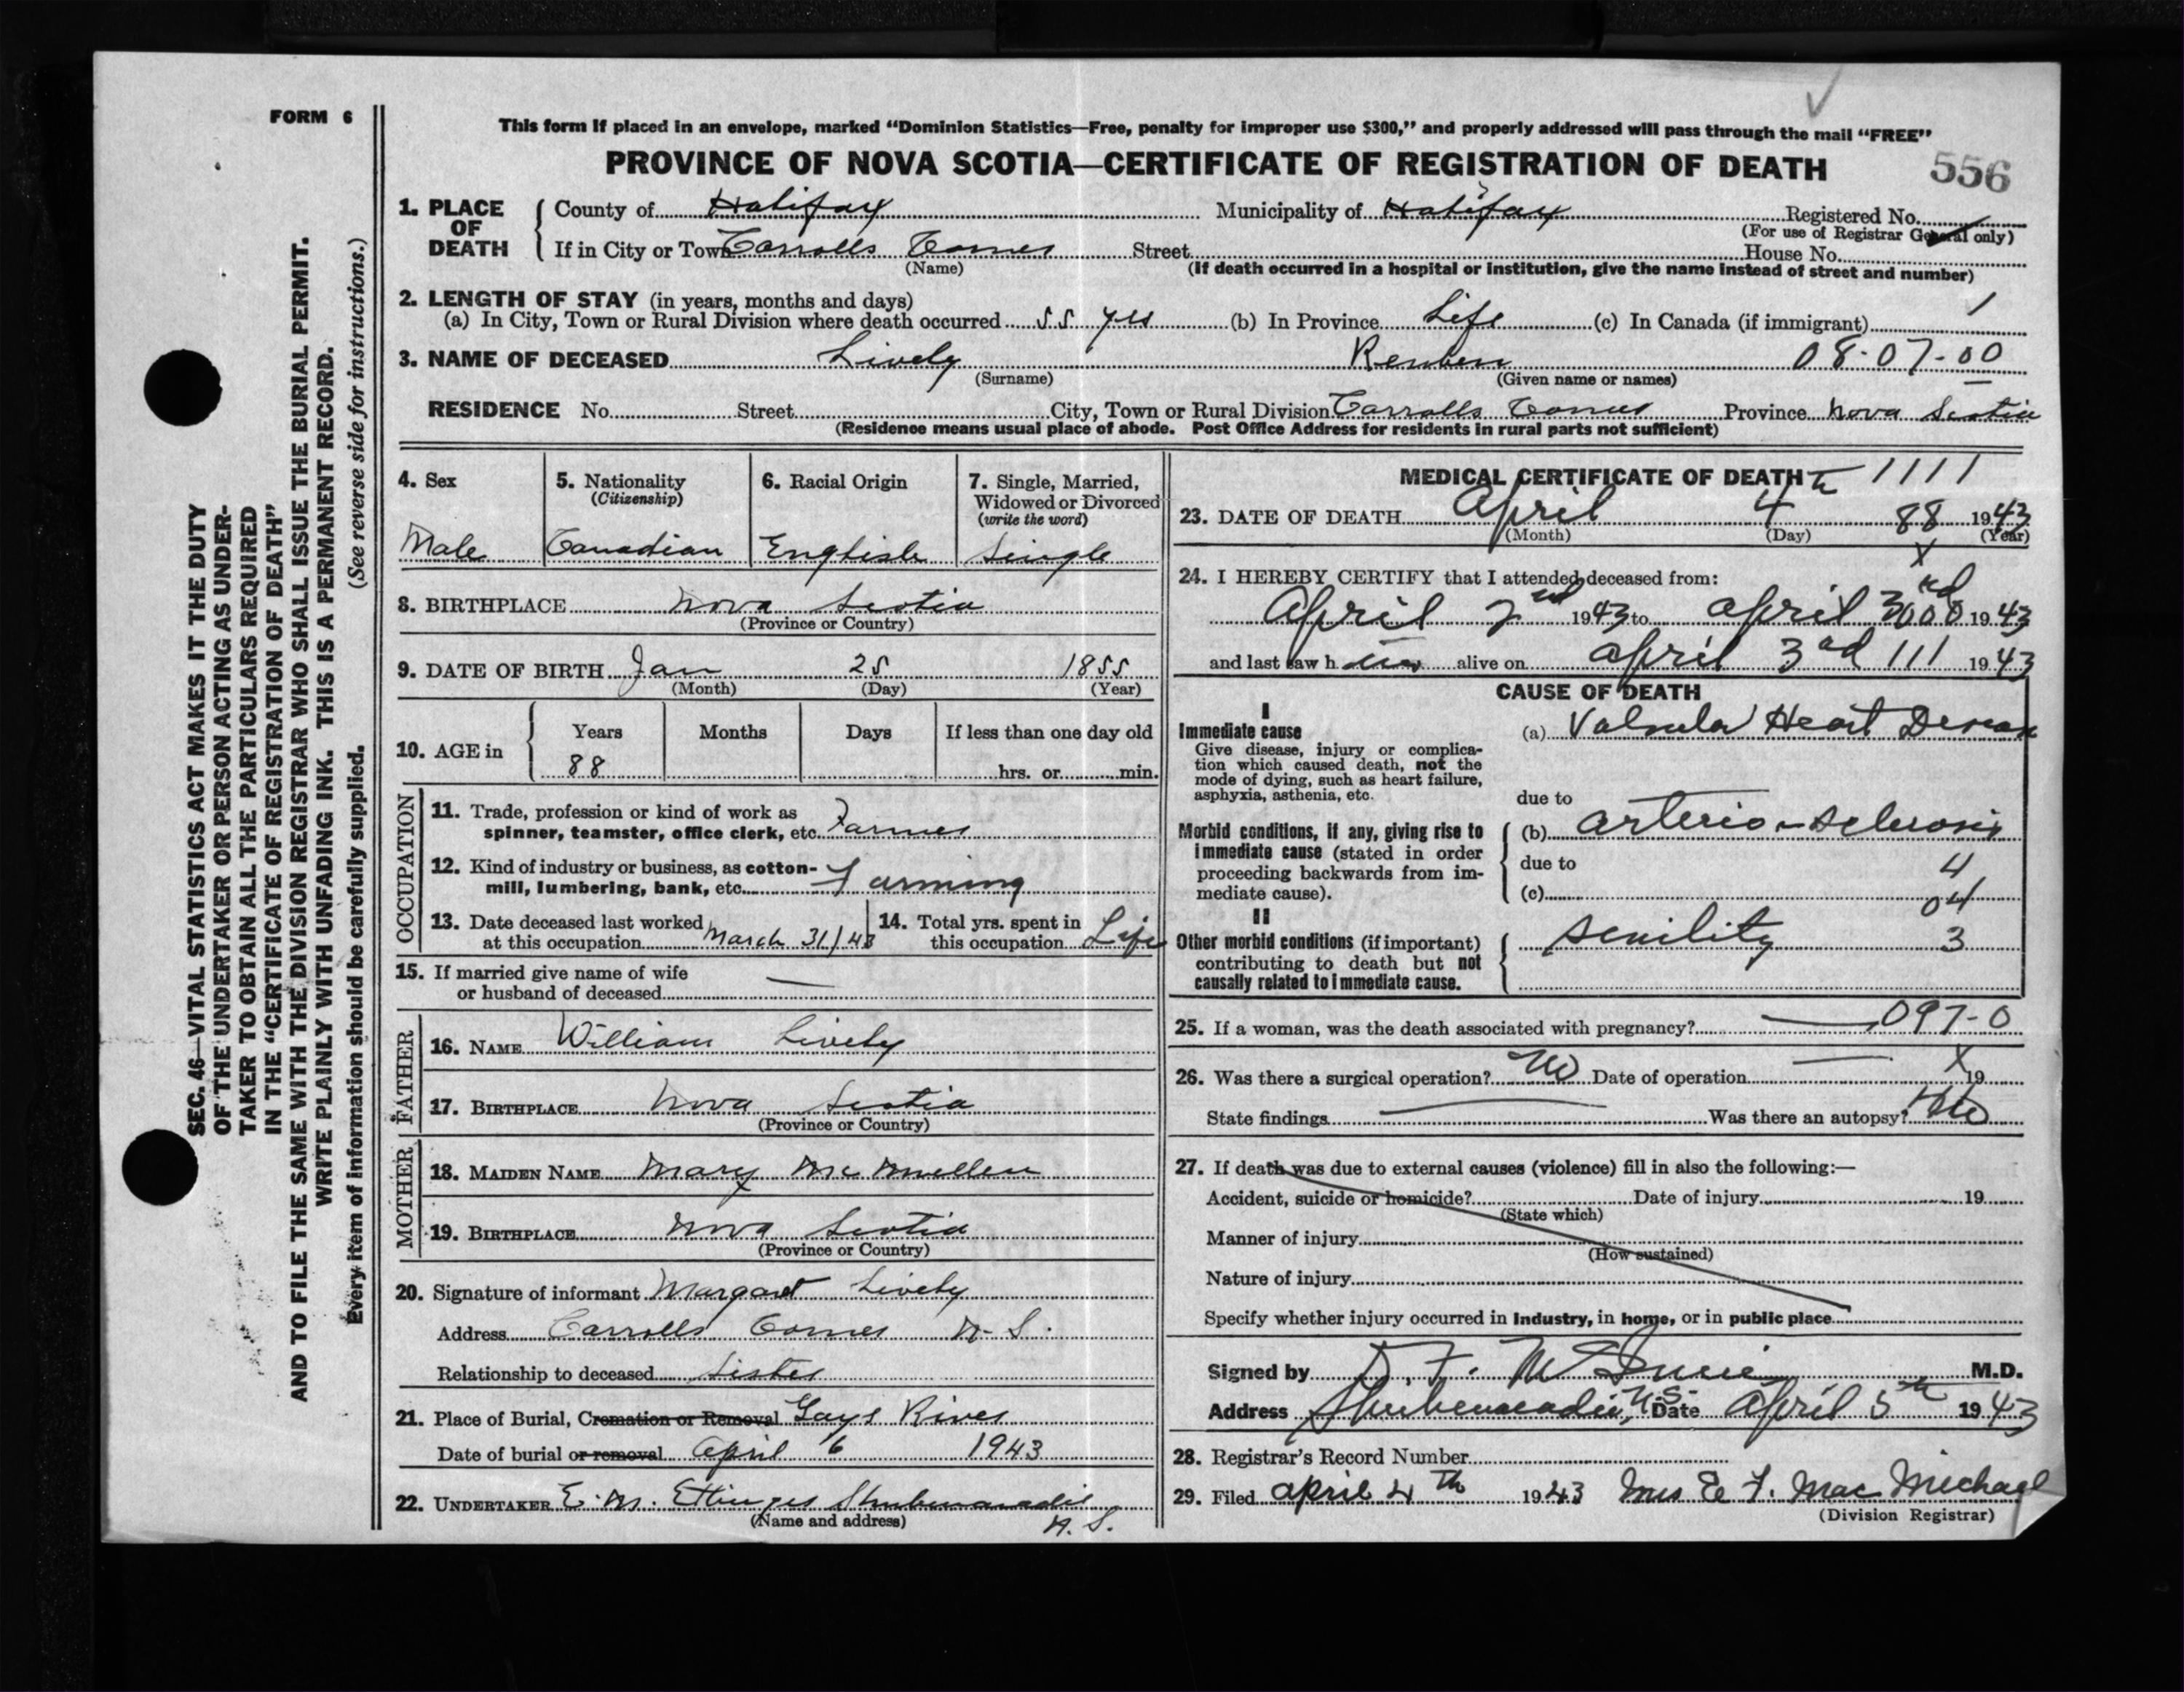 FORM 6
This form if placed in an envelope, marked "Dominion Statistics—Free, penalty for improper use $300," and properly addressed will pass through the mail "FREE"
PROVINCE OF NOVA SCOTIA—CERTIFICATE OF REGISTRATION OF DEATH
556
1. PLACE OF DEATH County of Halifax Municipality of Halifax Registered No.
(For use of Registrar General only)
If in City or Town Carrolls Corner Street House No.
(Name) (If death occurred in a hospital or institution, give the name instead of street and number)
2. LENGTH OF STAY (in years, months and days)
(a) In City, Town or Rural Division where death occurred 55 yrs (b) In Province Life (c) In Canada (if immigrant)
3. NAME OF DECEASED Lively Reuben 08-07-00
(Surname) (Given name or names)
RESIDENCE No. Street City, Town or Rural Division Carrolls Corner Province Nova Scotia
(Residence means usual place of abode. Post Office Address for residents in rural parts not sufficient)
4. Sex 5. Nationality 6. Racial Origin 7. Single, Married,
(Citizenship) Widowed or Divorced
(write the word)
Male Canadian English Single
8. BIRTHPLACE Nova Scotia
(Province or Country)
9. DATE OF BIRTH Jan 25 1855
(Month) (Day) (Year)
10. AGE in Years Months Days If less than one day old
88 hrs. or min.
OCCUPATION
11. Trade, profession or kind of work as
spinner, teamster, office clerk, etc. Farmer
12. Kind of industry or business, as cotton-
mill, lumbering, bank, etc. Farming
13. Date deceased last worked 14. Total yrs. spent in
at this occupation March 31/43 this occupation Life
15. If married give name of wife
or husband of deceased —
FATHER
16. NAME William Lively
17. BIRTHPLACE Nova Scotia
(Province or Country)
MOTHER
18. MAIDEN NAME Mary McMullen
19. BIRTHPLACE Nova Scotia
(Province or Country)
20. Signature of informant Margaret Lively
Address Carrolls Corner N.S.
Relationship to deceased Sister
21. Place of Burial, Cremation or Removal Gays River
Date of burial or removal April 6 1943
22. UNDERTAKER E. M. Ettinger Shubenacadie
(Name and address) N.S.
MEDICAL CERTIFICATE OF DEATH 1111
23. DATE OF DEATH April 4th 88 1943
(Month) (Day) (Year)
X
24. I HEREBY CERTIFY that I attended deceased from:
April 2nd 1943 to April 3rd 000 1943
and last saw h im alive on April 3rd 111 1943
CAUSE OF DEATH
I
Immediate cause (a) Valvular Heart Disease
Give disease, injury or complica-
tion which caused death, not the
mode of dying, such as heart failure,
asphyxia, asthenia, etc.
due to
Morbid conditions, if any, giving rise to (b) Arterio-sclerosis
immediate cause (stated in order due to 4
proceeding backwards from im-
mediate cause). (c) 04
II
Other morbid conditions (if important) senility 3
contributing to death but not
causally related to immediate cause.
25. If a woman, was the death associated with pregnancy? — 097-0
26. Was there a surgical operation? No Date of operation — X 19
State findings — Was there an autopsy? No
27. If death was due to external causes (violence) fill in also the following:—
Accident, suicide or homicide? Date of injury 19
(State which)
Manner of injury
(How sustained)
Nature of injury
Specify whether injury occurred in Industry, in home, or in public place
Signed by D. F. McInnis M.D.
Address Shubenacadie, N.S. Date April 5th 1943
28. Registrar's Record Number
29. Filed April 4th 1943 Mrs E F. MacMichael
(Division Registrar)
SEC. 46—VITAL STATISTICS ACT MAKES IT THE DUTY
OF THE UNDERTAKER OR PERSON ACTING AS UNDER-
TAKER TO OBTAIN ALL THE PARTICULARS REQUIRED
IN THE "CERTIFICATE OF REGISTRATION OF DEATH"
AND TO FILE THE SAME WITH THE DIVISION REGISTRAR WHO SHALL ISSUE THE BURIAL PERMIT.
WRITE PLAINLY WITH UNFADING INK. THIS IS A PERMANENT RECORD.
Every item of information should be carefully supplied. (See reverse side for instructions.)